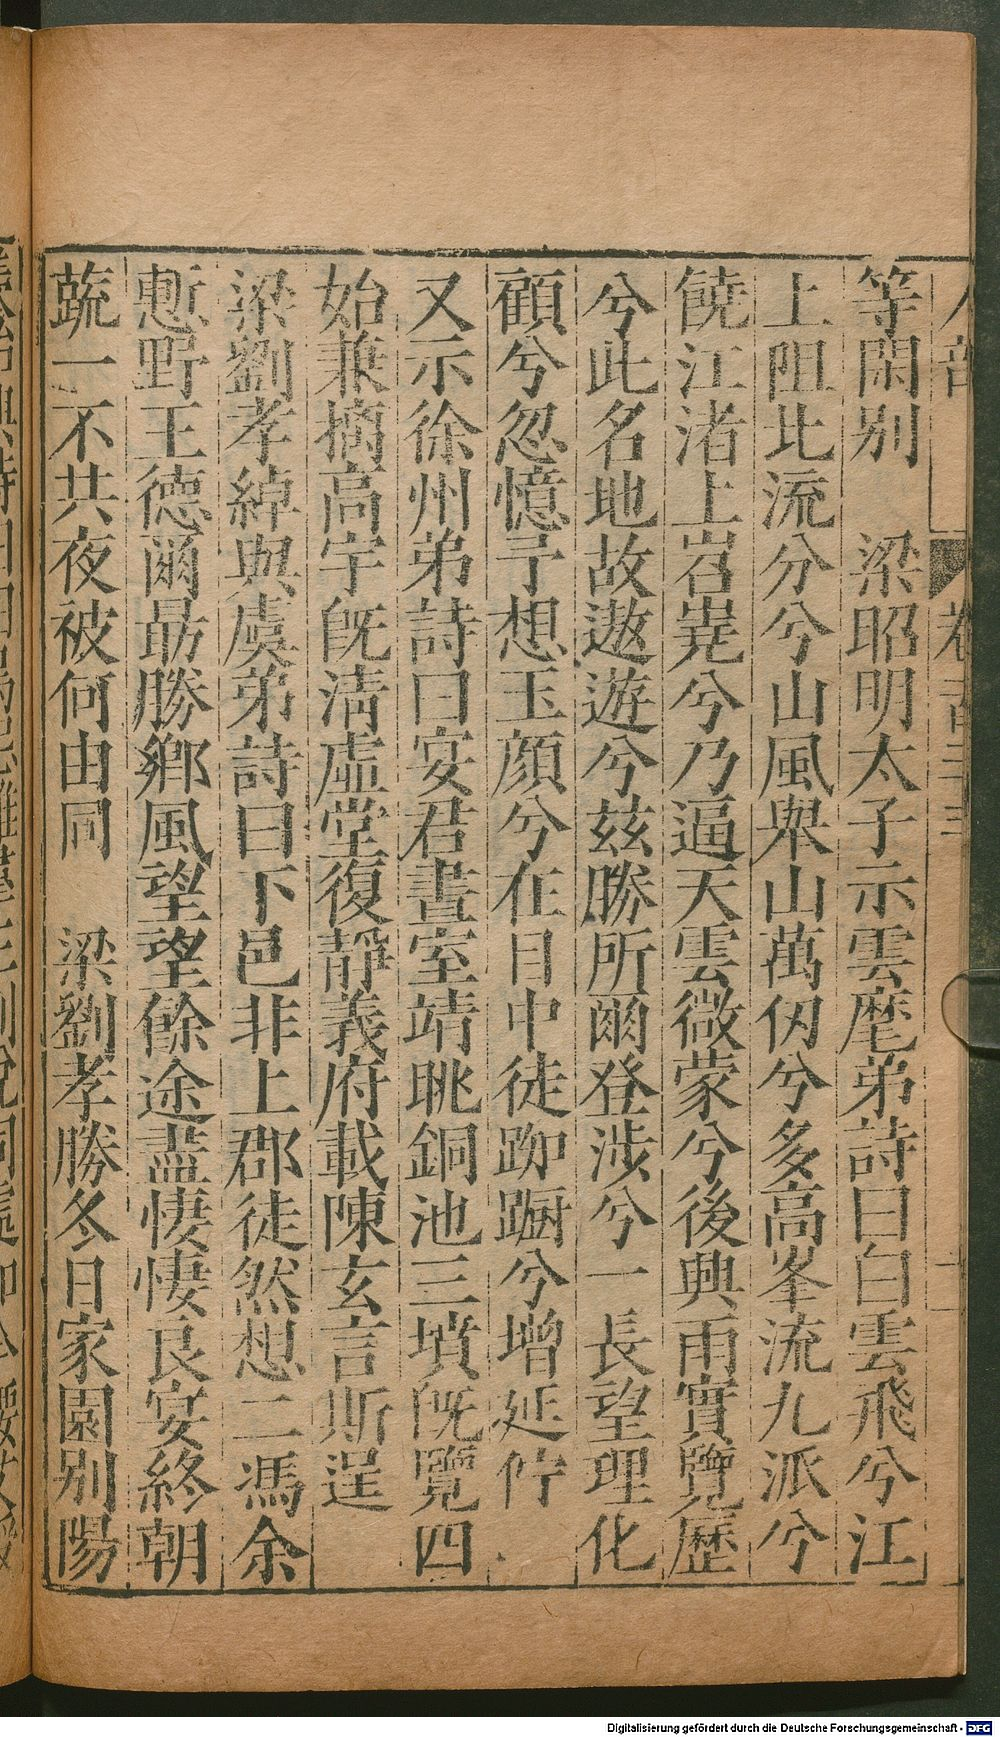 等閑別　梁昭明太子示雲麾弟詩曰白雲飛兮江
上阻北流分兮山風舉山萬仞兮多高峯流九派兮
饒江渚上岧嶤兮乃逼天雲微蒙兮後興雨實覽歷
兮此名地故遨遊兮兹勝所爾登涉兮一長望理化
顧兮忽憶予想玉顏兮在日中徒踟蹰兮增延佇
又示徐州弟詩曰安君晝室靖眺銅池三墳既覽四
始兼摘高宇既清虛堂復靜義府載陳玄言斯逞
梁劉孝綽與虞弟詩曰下邑非上郡徒然想二馮余
慙野王德爾勗勝鄉風望望餘途盡悽悽良宴終朝
蔬一不共夜被何由同　梁劉孝勝冬日家園別陽
Digitalisierung gefördert durch die Deutsche Forschungsgemeinschaft - DFG